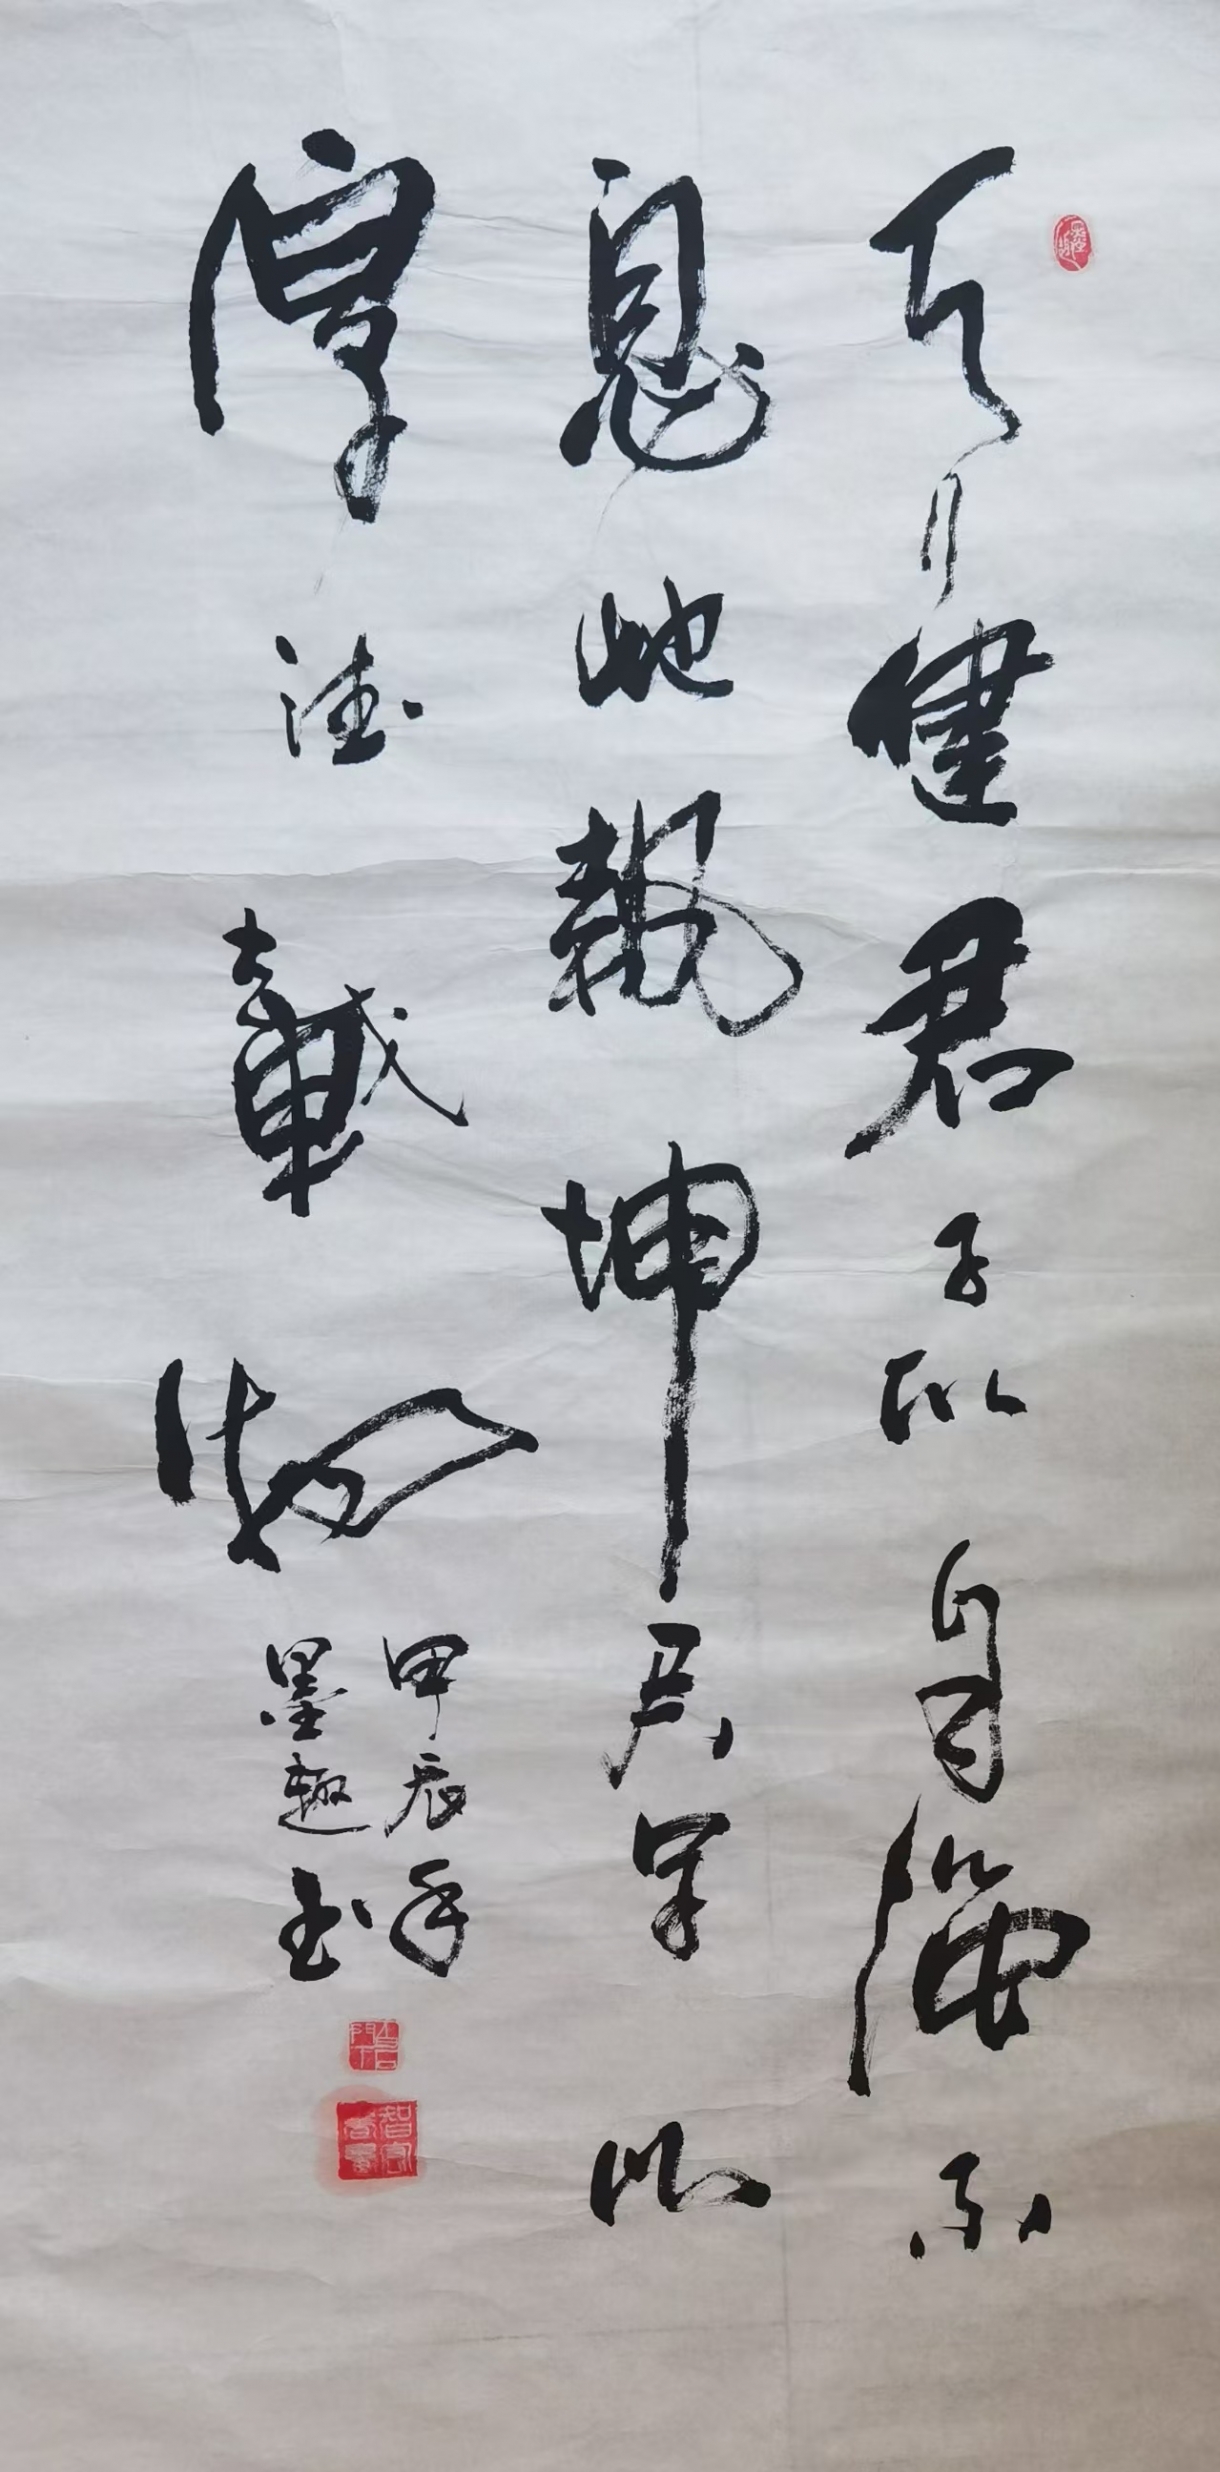 天行健君子以自強不
息地勢坤君子以
厚德載物
甲辰年
墨趣书